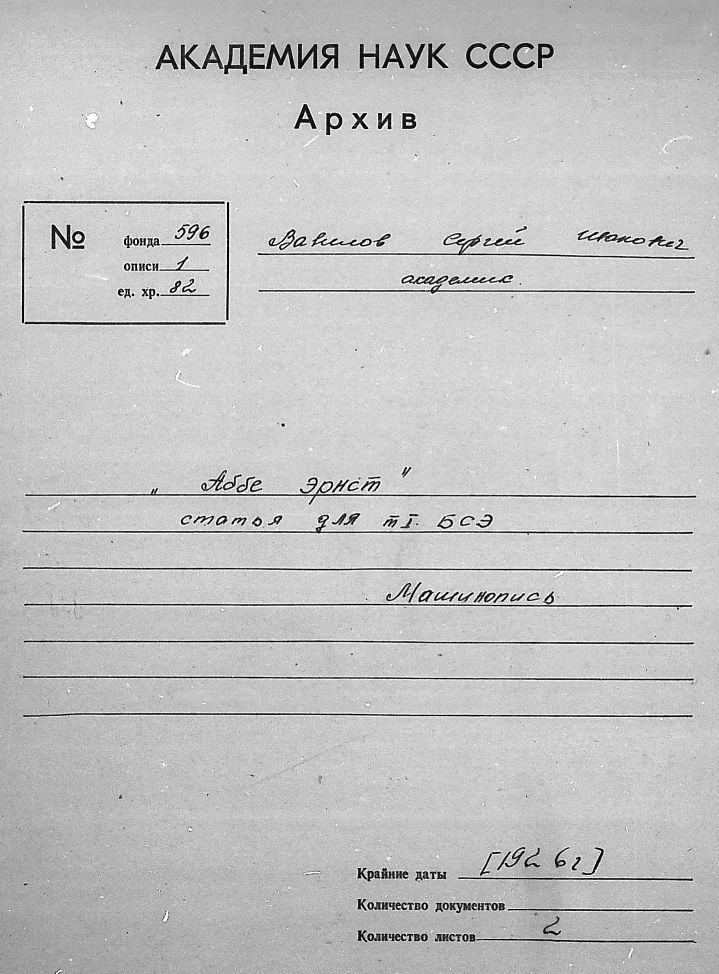 АКАДЕМИЯ НАУК СССР
Архив
№
фонда 596
описи 1
ед. хр. 82
Вавилов Сергей Иванович
академик.
„Аббе Эрнст"
статья для т I. БСЭ
Машинопись
Крайние даты [1926г]
Количество документов
Количество листов 2